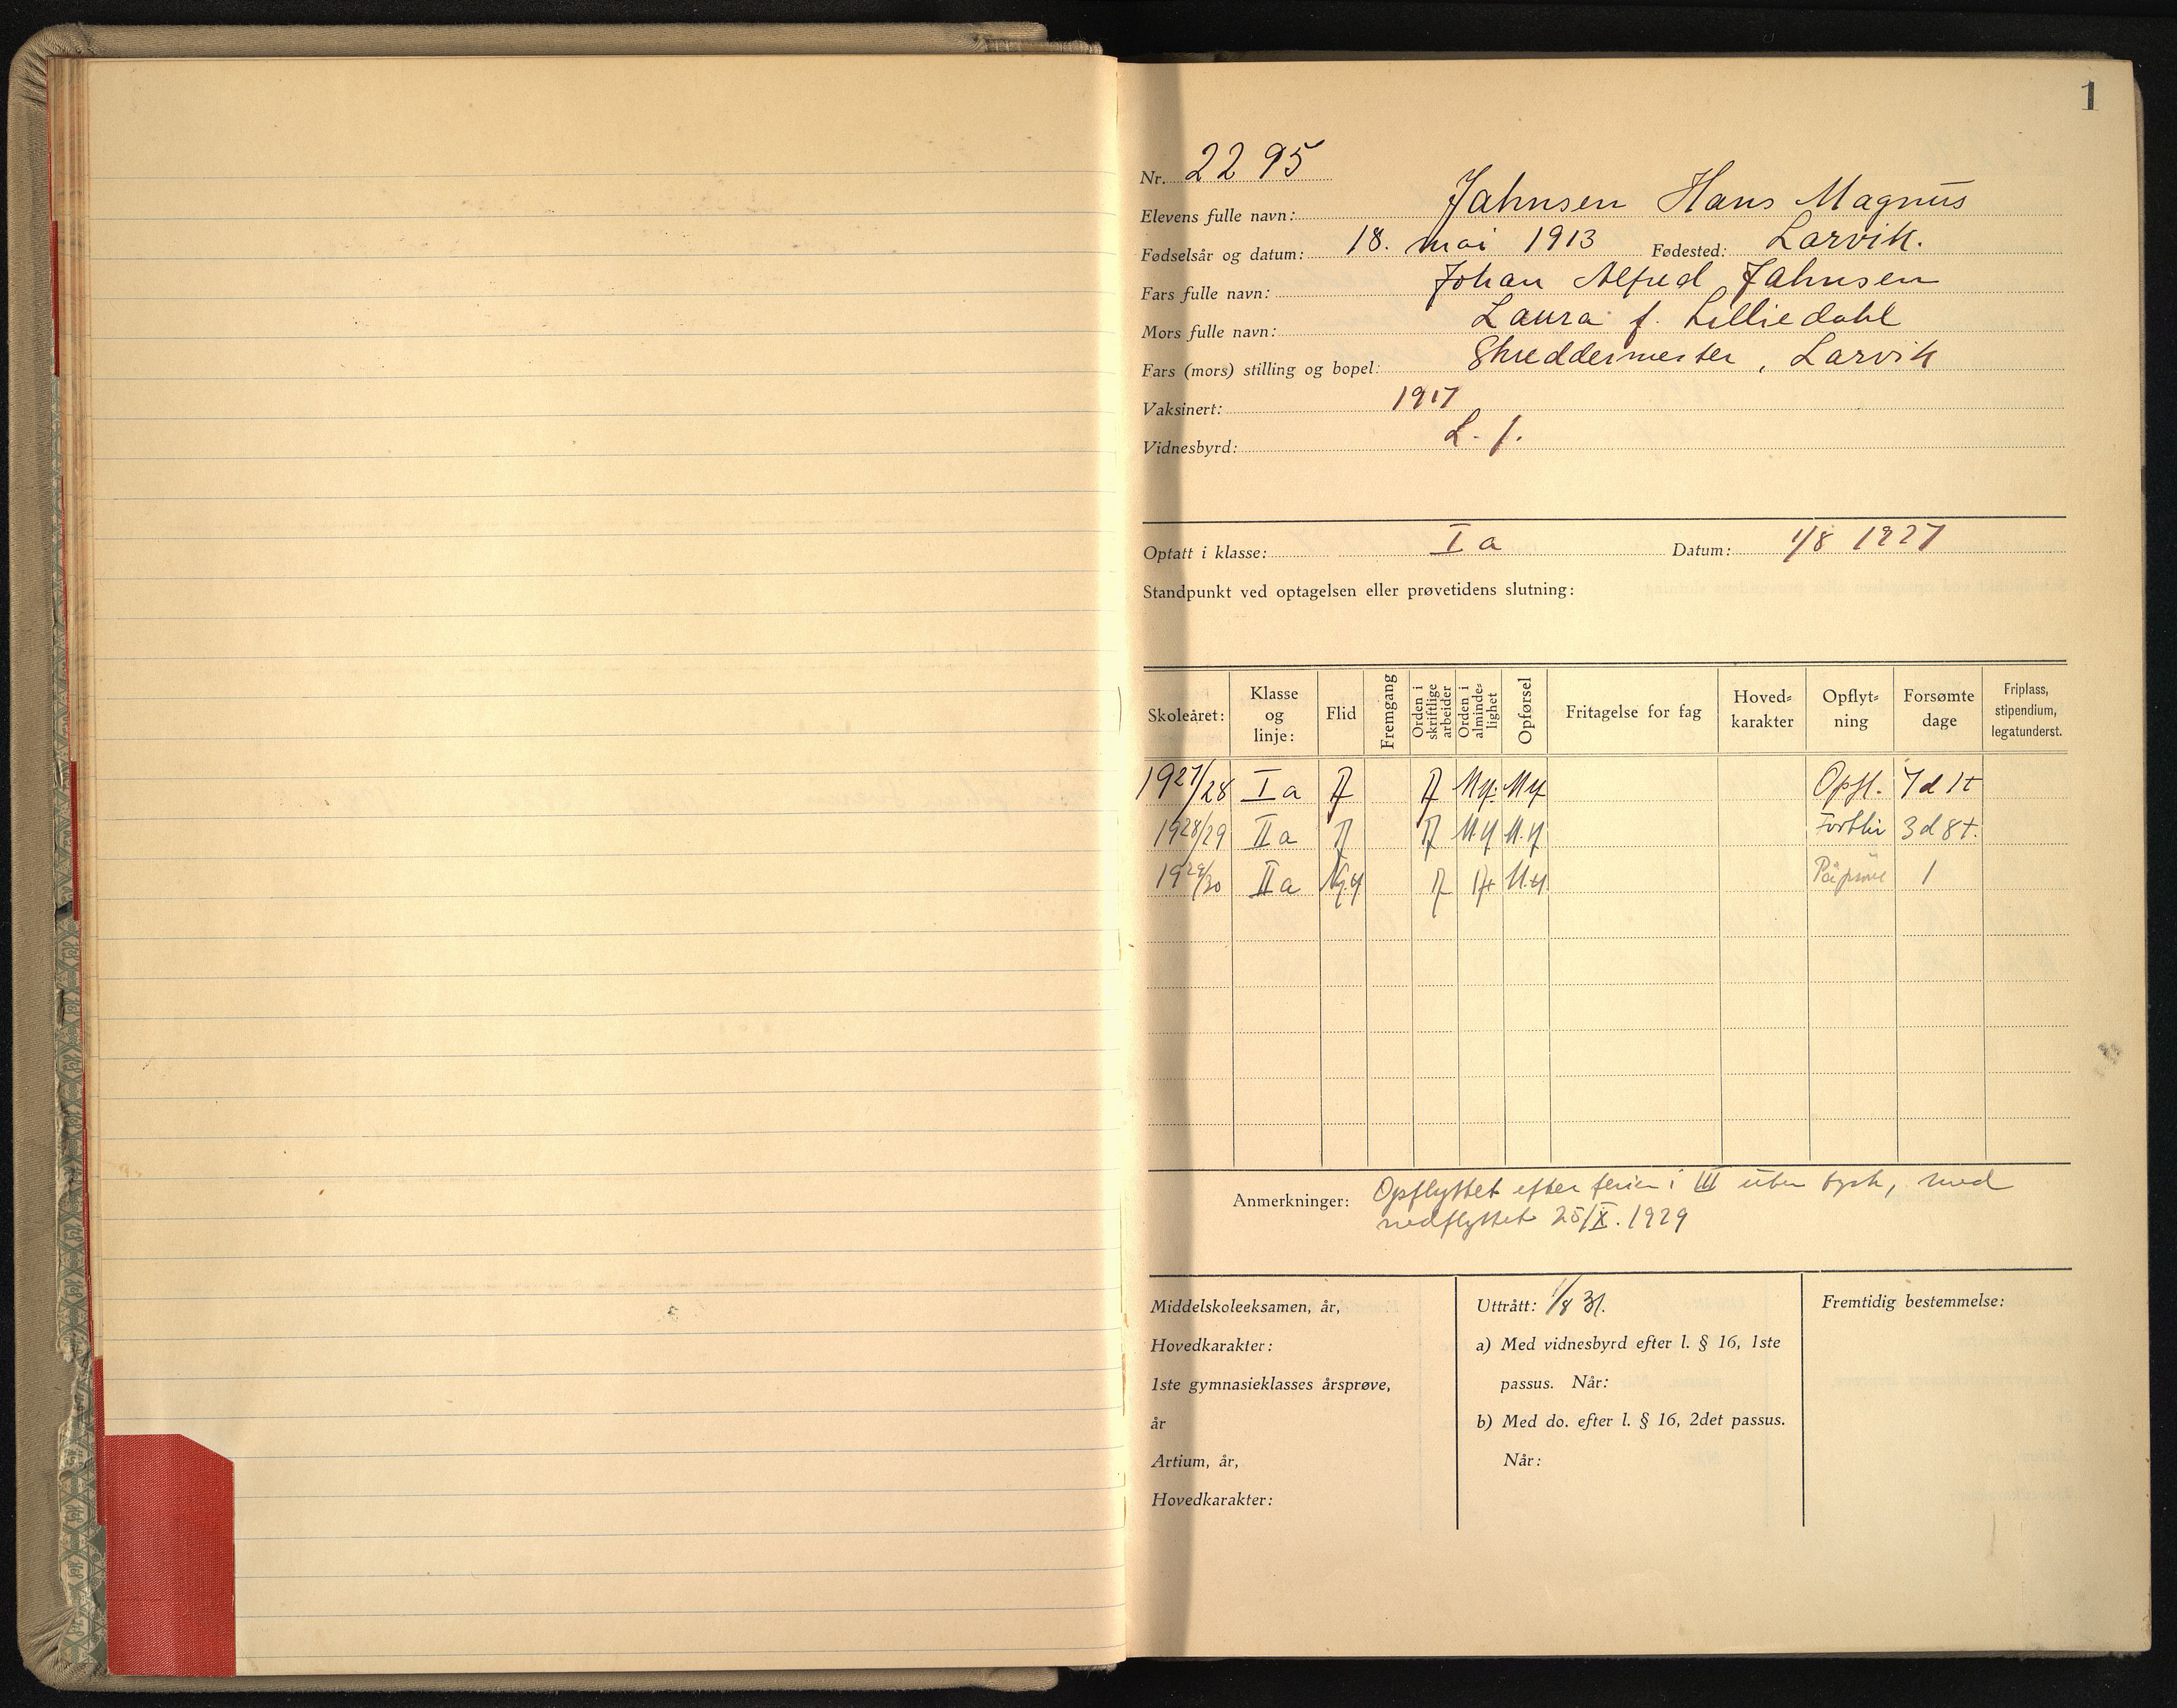 1
Nr. 2295
Elevens fulle navn: Jahnsen Hans Magnus
Fødselsår og datum: 18. mai 1913 Fødested: Larvik.
Fars fulle navn: Johan Alfred Jahnsen
Mors fulle navn: Laura f. Lilliedahl
Fars (mors) stilling og bopel: Skreddermester, Larvik
Vaksinert: 1917
Vidnesbyrd: L. f.
Optatt i klasse: I a Datum: 1/8 1927
Standpunkt ved optagelsen eller prøvetidens slutning:
Skoleåret: Klasse og linje: Flid Fremgang Orden i skriftlige arbeider Orden i almindelighet Opførsel Fritagelse for fag Hovedkarakter Opflytning Forsømte dage Friplass, stipendium, legatunderst.
1927/28 I a Mg. Mg Opfl. 7 d 1 t
1928/29 II a Mg M.g Forblir 3 d 8 t.
1929/30 II a Ng M.g På prøve 1
Anmerkninger: Opflyttet efter ferien i III uten tysk, med
nedflyttet 25/X. 1929
Middelskoleeksamen, år, Uttrått: 1/8 31. Fremtidig bestemmelse:
Hovedkarakter: a) Med vidnesbyrd efter l. § 16, 1ste
1ste gymnasieklasses årsprøve, passus. Når:
år b) Med do. efter l. § 16, 2det passus.
Artium, år, Når:
Hovedkarakter: